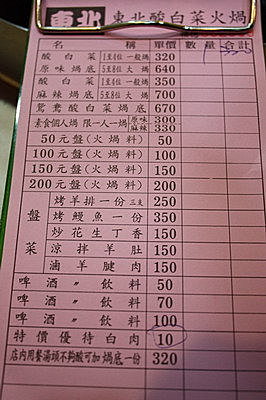 東北 東北酸白菜火鍋
名 稱 單價 數量 合計
酸白菜 1至4位一般鍋 320
原味鍋底 5至8位大鍋 640
酸白菜 1至4位一般鍋 350
麻辣鍋底 5至8位大鍋 700
鴛鴦酸白菜鍋底 670
素食個人鍋 限一人一鍋 原味 300
麻辣 330
50元盤(火鍋料) 50
100元盤(火鍋料) 100
150元盤(火鍋料) 150
200元盤(火鍋料) 200
盤菜
烤羊排一份三支 250
烤鰻魚一份 350
炒花生丁香 150
涼拌羊肚 150
滷羊腱肉 150
啤酒〃飲料 50
啤酒〃飲料 70
啤酒〃飲料 100
特價優待白肉 10
店內用餐湯頭不夠酸可加鍋底一份 320